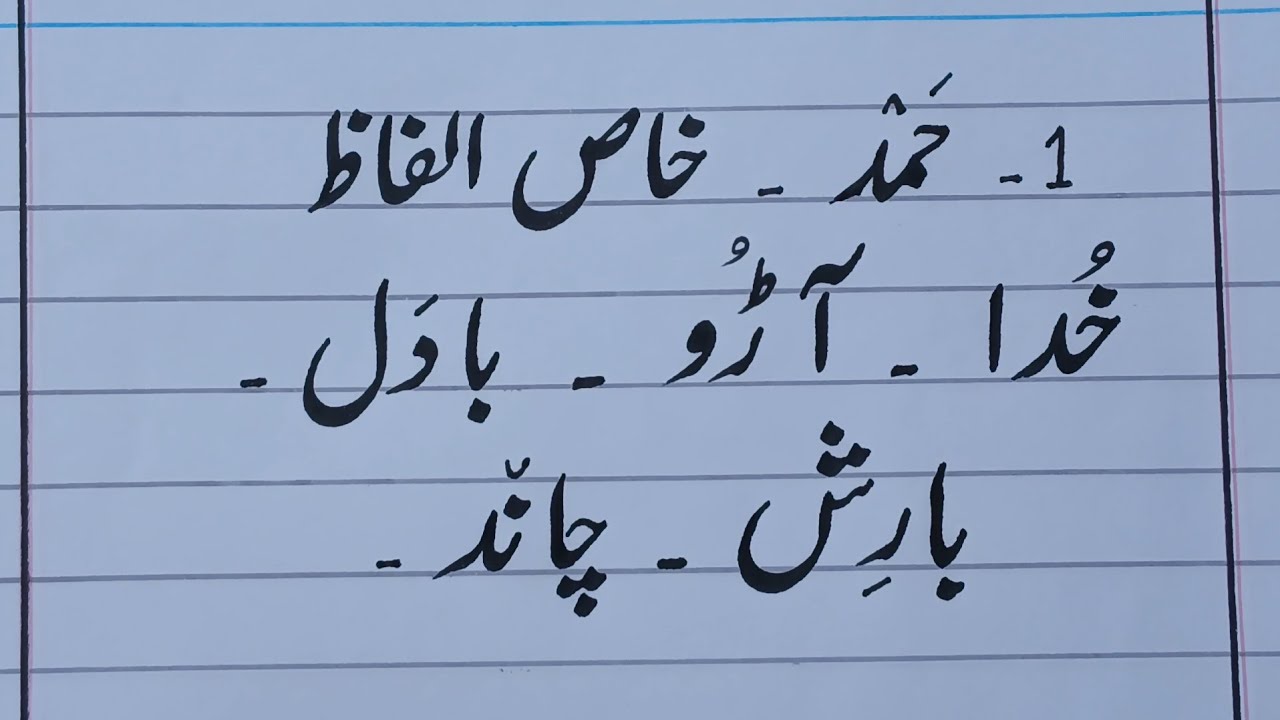 1۔ حَمْد ۔ خاص الفاظ
خُدا ۔ آڑُو ۔ بادَل ۔
بارِش ۔ چان٘د ۔